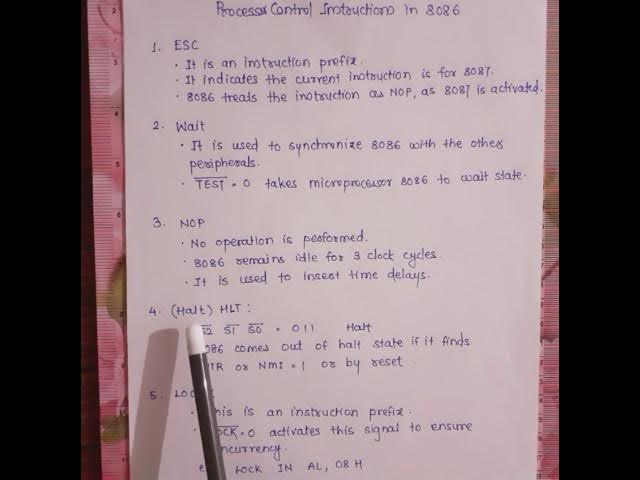 Processor Control Instructions in 8086
1. ESC
· It is an instruction prefix.
· It indicates the current instruction is for 8087.
· 8086 treats the instruction as NOP, as 8087 is activated.
2. Wait
· It is used to synchronize 8086 with the other
peripherals.
· T̅E̅S̅T̅ = 0 takes microprocessor 8086 to wait state.
3. NOP
· No operation is performed.
· 8086 remains idle for 3 clock cycles.
· It is used to insert time delays.
4. (Halt) HLT:
S̅1̅ S̅0̅ = 011 Halt
comes out of halt state if it finds
or NMI = 1 or by reset
5.
is an instruction prefix.
= 0 activates this signal to ensure
LOCK IN AL, 08H